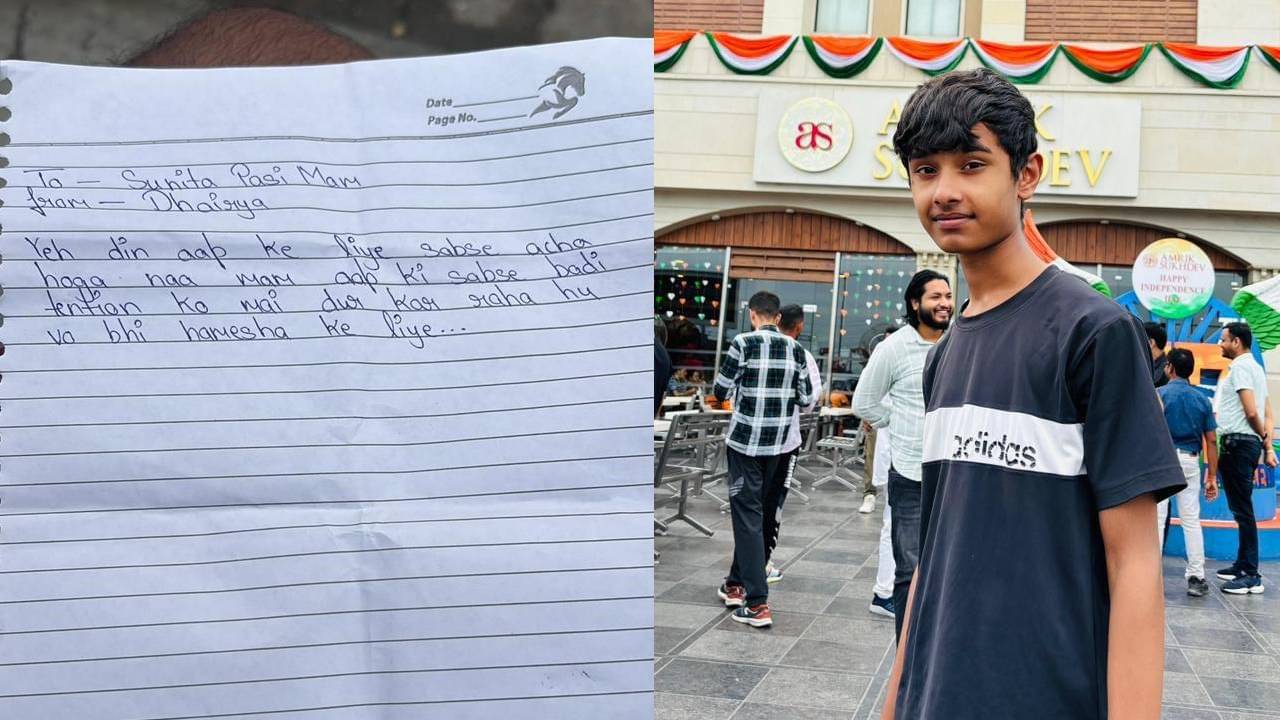 Date
Page No.
To – Sunita Pasi Mam
from – Dhairya
Yeh din aap ke liye sabse acha
hoga naa mam aap ki sabse badi
tention ko mai dur kar raha hu
vo bhi hamesha ke liye...
as
AMRIK
SUKHDEV
AMRIK
SUKHDEV
HAPPY
INDEPENDENCE
adidas